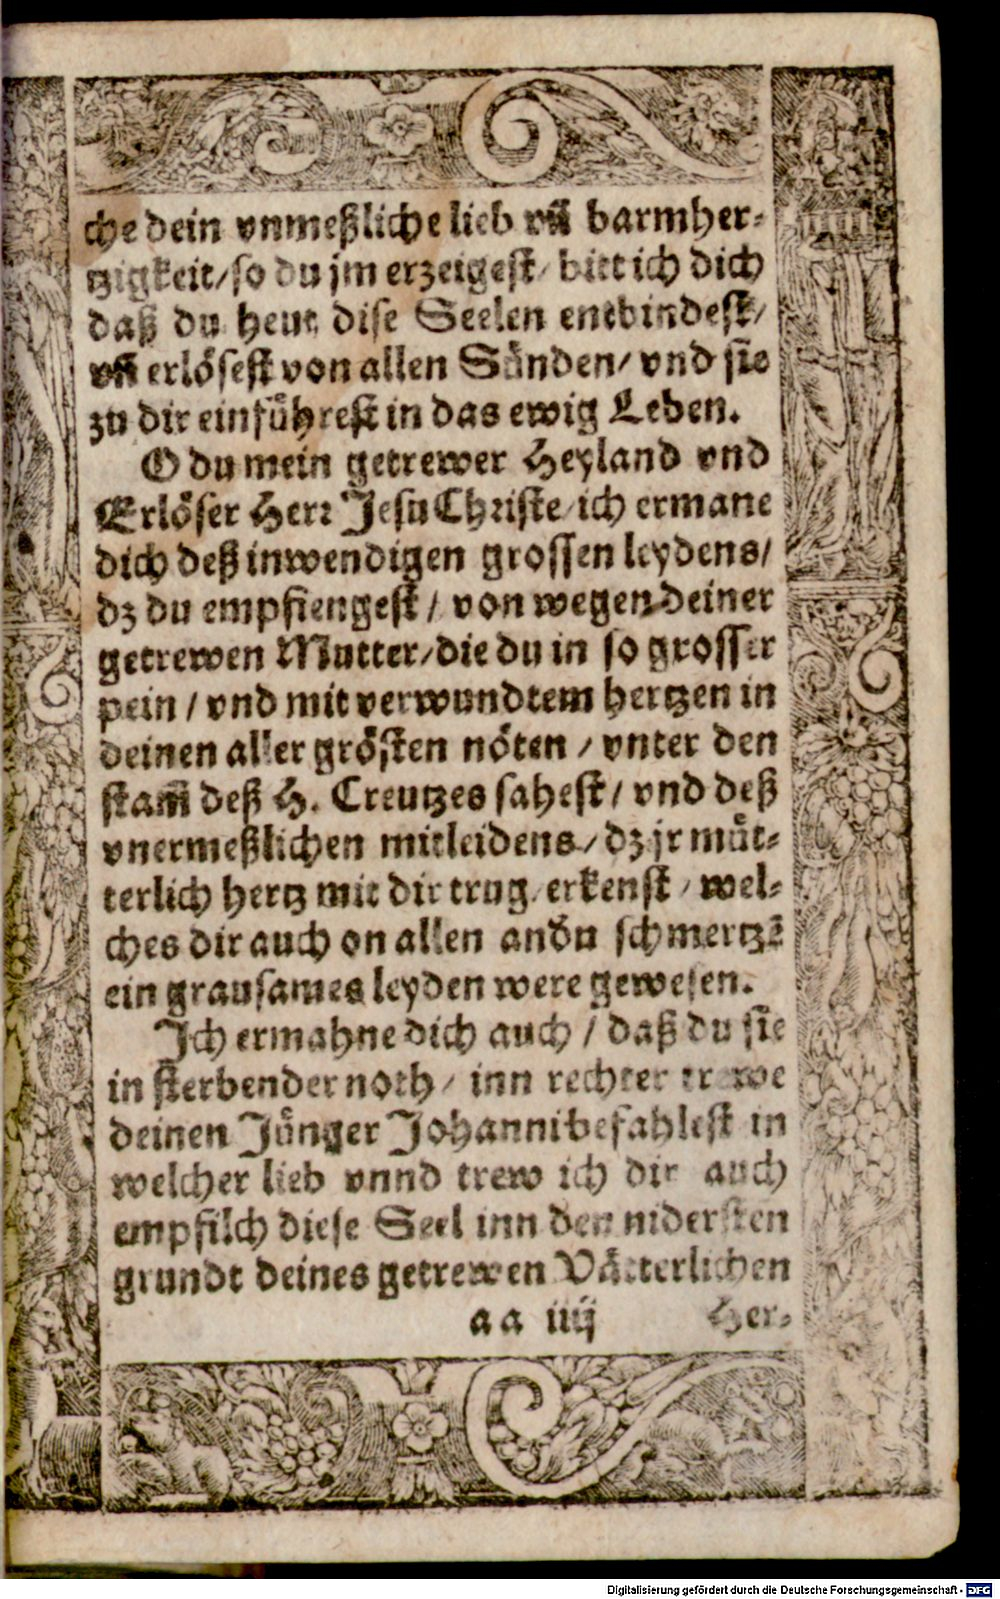 che dein vnmeßliche lieb vñ barmher-
tzigkeit/ so du jm erzeigest/ bitt ich dich
daß du heut dise Seelen entbindest/
vñ erlösest von allen Sünden/ vnd sie
zu dir einführest in das ewig Leben.
O du mein getrewer Heyland vnd
Erlöser Herr Jesu Christe/ ich ermane
dich deß inwendigen grossen leydens/
dz du empfiengest/ von wegen deiner
getrewen Mutter/ die du in so grosser
pein/ vnd mit verwundtem hertzen in
deinen aller grösten nöten/ vnter den
stam̃ deß H. Creutzes sahest/ vnd deß
vnermeßlichen mitleidens/ dz jr müt-
terlich hertz mit dir trug/ erkenst/ wel-
ches dir auch on allen andn schmertzẽ
ein grausames leyden were gewesen.
Ich ermahne dich auch/ daß du sie
in sterbender noth/ inn rechter trewe
deinen Jünger Johanni befahlest in
welcher lieb vnnd trew ich dir auch
empfilch diese Seel inn den nidersten
grundt deines getrewen Vätterlichen
aa iiij Her-
Digitalisierung gefördert durch die Deutsche Forschungsgemeinschaft - DFG